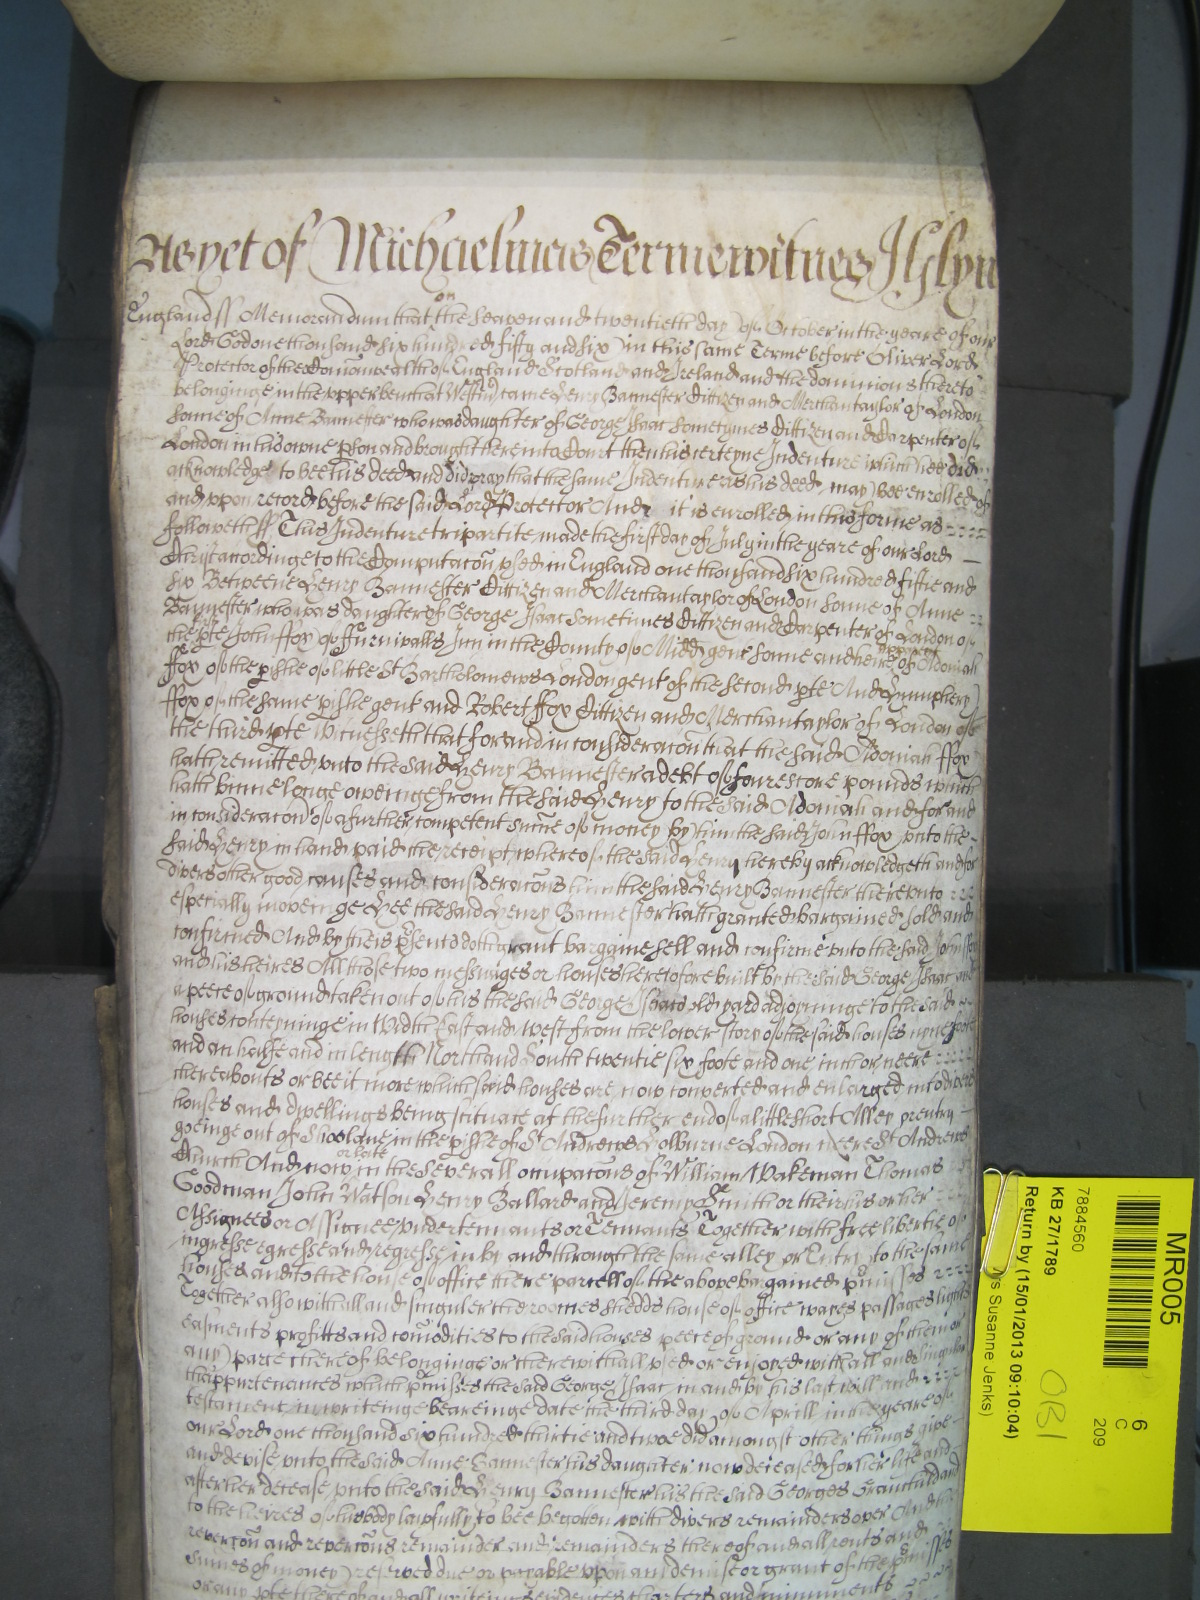 As yet of Michaelmas Terme witnes Jo Glyn
England ss Memorandum that on the seaven and twentieth day of October in the yeare of our
Lord God one thousand six hundred fifty and six in this same Terme before Oliver Lord
Protector of the Comonwealth of England Scotland and Ireland and the dominions thereto
belonginge in the upper bench at Westm came Henry Bannester Cittizen and Merchantaylor of London
sonne of Anne Bannester who was daughter of George Isaac sometymes Cittizen and Carpenter of
London in his owne pson and brought there into Court then his certeyne Indenture which hee did
acknowledge to bee his deed and did pray that the same Indenture as his deed may bee enrolled of
and upon record before the said Lord Protector And it is enrolled in this forme as
followeth ss This Indenture tripartite made the first day of July in the yeare of our Lord
Christ accordinge to the Computacon used in England one thousand six hundred fiftie and
six Betweene Henry Bannester Cittizen and Merchantaylor of London sonne of Anne
Bannester who was daughter of George Isaac sometimes Cittizen and Carpenter of London of
the pte John ffox of ffurnivalls Inn in the County of Midd gent sonne and heire apparent of Aldomiah
ffox of the pishe of little St Bartholomews London gent of the second pte And Humphery
ffox of the same pishe gent and Robert ffox Cittizen and Merchantaylor of London of
the third pte Witnesseth that for and in consideracon that the said Aldomiah ffox
hath remitted unto the said Henry Bannester a debt of fourescore pounds which
hath binne longe oweinge from the said Henry to the said Aldomiah and for and
in consideracon of a further competent sume of money by him the said John ffox unto the
said Henry in hand paid the receipt whereof the said Henry hereby acknowledgeth and for
divers other good causes and consideracons him the said Henry Bannester thereunto
especially moveinge Hee the said Henry Bannester hath granted bargained sold and
confirmed And by theis psents doth grant bargaine sell and confirme unto the said John ffox
and his heires All those two messuages or houses heretofore built by the said George Isaac and
a peece of ground taken out of his the said George Isaacs old yard adjoyninge to the said
houses conteyninge in Widthe East and West from the lower story of the said houses nyne foote
and an halfe and in length North and South twentie six foote and one inch or neere
thereabouts or bee it more which said houses are now converted and enlarged into divers
houses and dwellings being scituate at the further end of a little short Alley or entry
goeinge out of Shoelane in the pishe of St Andrewes Holburne London neere St Andrewes
Church And now or late in the severall occupacons of William Wakeman Thomas
Goodman John Watson Henry Ballard and Jeremy Smith or their his or her
Assignees or Assignee undertennants or Tennants Together with free libertie of
ingresse egresse and regresse in by and through the same alley or Entry to the same
houses and to the house of office there parcell of the above bargained pmisses
Together also with all and singuler the roomes shedds house of office wayes passages lights
easments profitts and comodities to the said houses peece of ground or any of them or
any parte thereof belonginge or therewithall used or enjoyed with all and singuler
thappurtenances which pmisses the said George Isaac in and by his last will and
testament in writeinge beareinge date the third day of Aprill in the yeare of
our Lord one thousand six hundred thirtie and twoe did amongst other things give
and devise unto the said Anne Bannester his daughter now deceased for her life and
after her decease unto the said Henry Bannester his the said Georges Grauntchild and
to the heires of his body lawfully to bee begotten with divers remainders over And the
revercon and revercons remainder and remainders thereof and all rents and
sumes of money reserved due or payable upon any demise or grant of the pmisses
or any pte thereof and all writings evidences charters and minuments
MR005
6
C
209
7884560
KB 27/1789
Return by (15/01/2013 09:10:04)
Susanne Jenks)
OB1